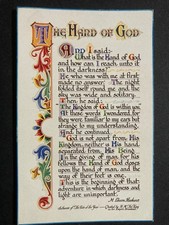 The Hand of God
And I said:
"What is the Hand of God
and how can I reach unto it
in the darkness?"
He who was with me at first
made no answer! The night
folded itself round me and the
sky was wide and solitary.
Then he said:
"The Kingdom of God is within you"
And at these words I wondered, for
they were familiar to my ears but
strange to my understanding.
And he continued,
"God is not apart from His
Kingdom; neither is His hand
separated from His Being.
In the giving of man, for his
fellows the Hand of God closes
upon the hand of man, and the
way of their feet is one.
This is the beginning of that
adventure in which darkness and
light are indistinguishable."